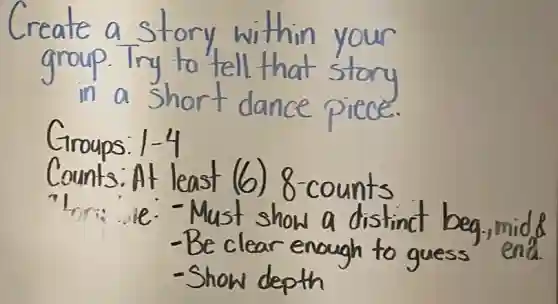 Create a story within your
group. Try to tell that story
in a short dance piece.
Groups: 1-4
Counts: At least (6) 8-counts
-Must show a distinct beg., mid &
end.
-Be clear enough to guess
-Show depth